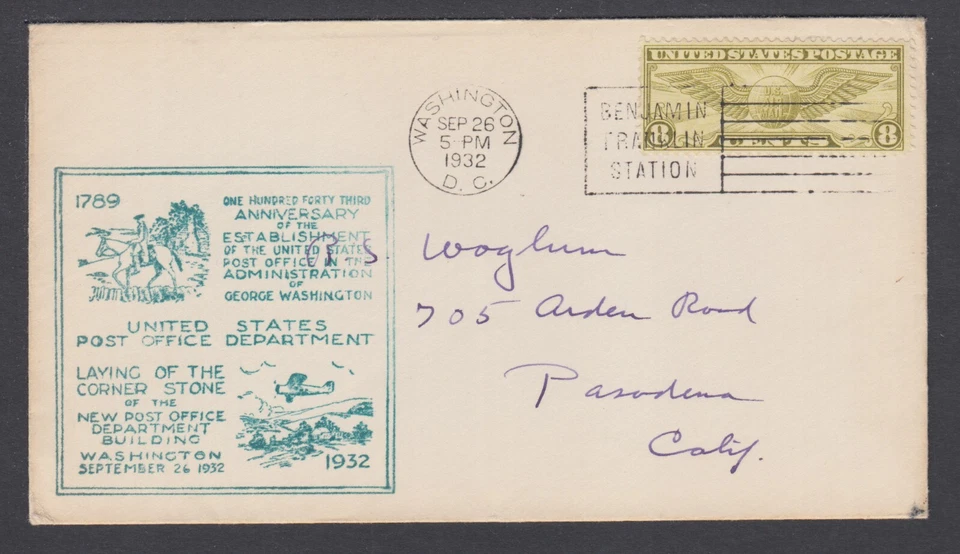 UNITED STATES POSTAGE
U.S.
8 CENTS 8
WASHINGTON
SEP 26
5 PM
1932
D. C.
BENJAMIN
FRANKLIN
STATION
1789
ONE HUNDRED FORTY THIRD
ANNIVERSARY
OF THE
ESTABLISHMENT
OF THE UNITED STATES
POST OFFICE IN THE
ADMINISTRATION
OF
GEORGE WASHINGTON
UNITED STATES
POST OFFICE DEPARTMENT
LAYING OF THE
CORNER STONE
OF THE
NEW POST OFFICE
DEPARTMENT
BUILDING
WASHINGTON
SEPTEMBER 26 1932
1932
R. S. Woglum
705 Arden Road
Pasadena
Calif.